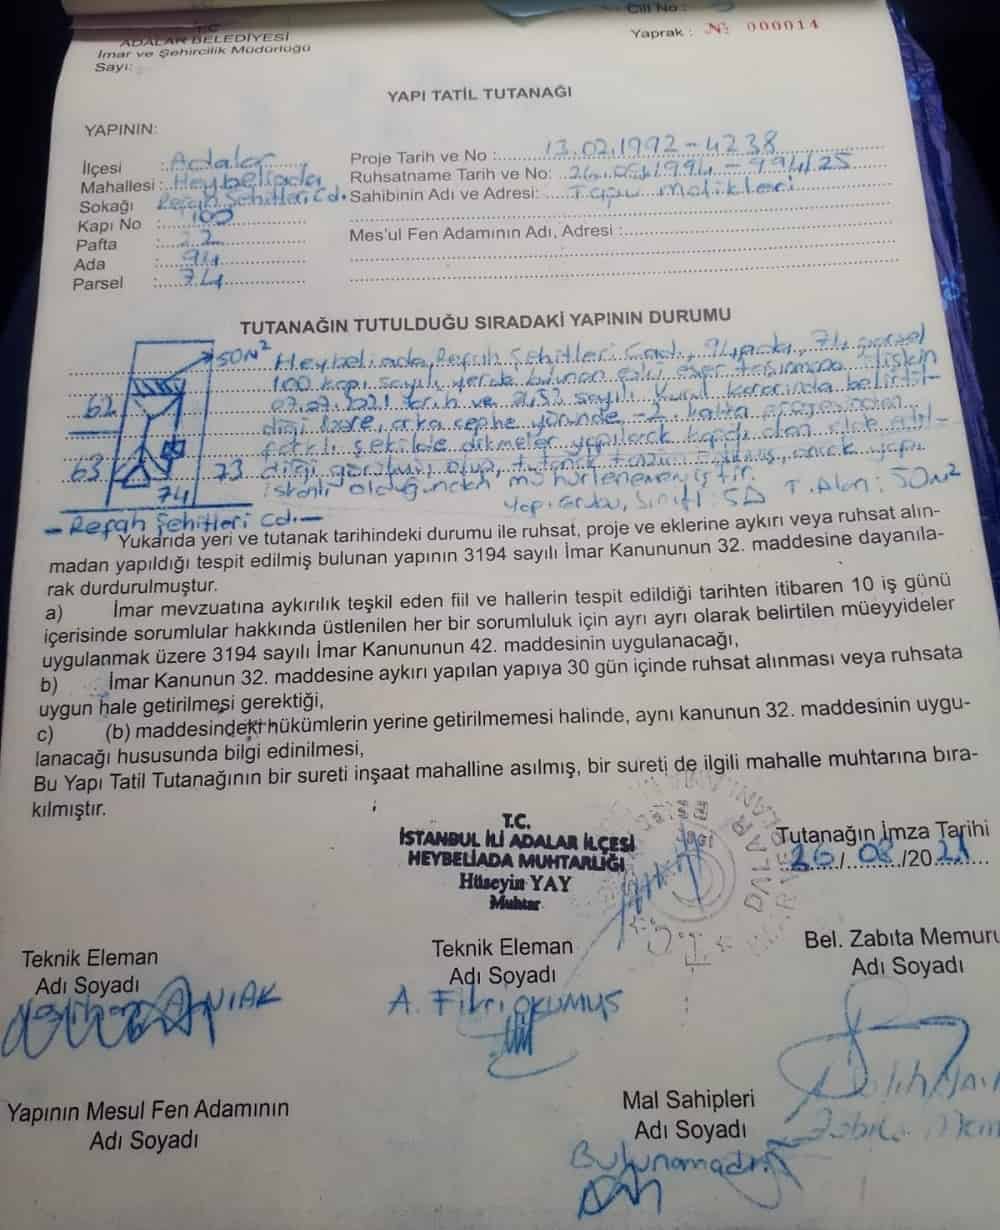 Cilt No :
T.C.
ADALAR BELEDİYESİ
İmar ve Şehircilik Müdürlüğü
Sayı:
Yaprak : № 000014
YAPI TATİL TUTANAĞI
YAPININ:
İlçesi : Adalar
Mahallesi : Heybeliada
Sokağı Refah Şehitleri Cd.
Kapı No : 100
Pafta : 22
Ada : 94
Parsel : 74
Proje Tarih ve No : 13.02.1992-4238
Ruhsatname Tarih ve No: 26.05.1994-994/25
Sahibinin Adı ve Adresi: Tapu Malikleri
Mes'ul Fen Adamının Adı, Adresi :
TUTANAĞIN TUTULDUĞU SIRADAKİ YAPININ DURUMU
50M²
62
63
73
74
- Refah Şehitleri Cd. -
Heybeliada, Refah Şehitleri Cad., 94 ada, 74 parsel
100 kapı sayılı yerde bulunan eski eser taşınmaza ilişkin
07.07.2021 tarih ve sayılı Kurul kararında belirtil-
diği üzere, arka cephe yönünde -2. katta projesinden
farklı şekilde dikmeler yapılarak kapalı alan elde edil-
diği görülmüş olup, tutanak tanzim edilmiş, ancak yapı
iskanlı olduğundan mühürlenememiştir.
Yapı Grubu, Sınıfı: 5A T. Alan: 50M²
Yukarıda yeri ve tutanak tarihindeki durumu ile ruhsat, proje ve eklerine aykırı veya ruhsat alın-
madan yapıldığı tespit edilmiş bulunan yapının 3194 sayılı İmar Kanununun 32. maddesine dayanıla-
rak durdurulmuştur.
a) İmar mevzuatına aykırılık teşkil eden fiil ve hallerin tespit edildiği tarihten itibaren 10 iş günü
içerisinde sorumlular hakkında üstlenilen her bir sorumluluk için ayrı ayrı olarak belirtilen müeyyideler
uygulanmak üzere 3194 sayılı İmar Kanununun 42. maddesinin uygulanacağı,
b) İmar Kanunun 32. maddesine aykırı yapılan yapıya 30 gün içinde ruhsat alınması veya ruhsata
uygun hale getirilmesi gerektiği,
c) (b) maddesindeki hükümlerin yerine getirilmemesi halinde, aynı kanunun 32. maddesinin uygu-
lanacağı hususunda bilgi edinilmesi,
Bu Yapı Tatil Tutanağının bir sureti inşaat mahalline asılmış, bir sureti de ilgili mahalle muhtarına bıra-
kılmıştır.
T.C.
İSTANBUL İLİ ADALAR İLÇESİ
HEYBELİADA MUHTARLIĞI
Hüseyin YAY
Muhtar
Tutanağın İmza Tarihi
26/08/2021
Teknik Eleman
Adı Soyadı
Teknik Eleman
Adı Soyadı
A. Fikri OKUMUŞ
Bel. Zabıta Memuru
Adı Soyadı
Yapının Mesul Fen Adamının
Adı Soyadı
Mal Sahipleri
Adı Soyadı
Bulunamadı